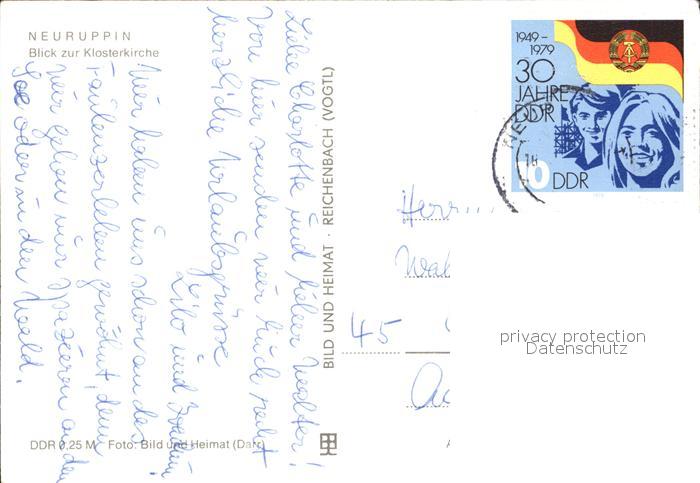 NEURUPPIN
Blick zur Klosterkirche
Liebe Charlotte und lieber Walter!
Von hier senden wir Euch recht
herzliche Urlaubsgrüsse
Lilo und
Wir haben uns schon an das
Faulenzerleben gewöhnt, denn
wir gehen nur spazieren an den
See oder in den Wald.
DDR 0,25 M Foto: Bild und Heimat (Darr)
BILD UND HEIMAT · REICHENBACH (VOGTL)
1949–
1979
30
JAHRE
DDR
10 DDR
Herr...
Wal
45
privacy protection
Datenschutz